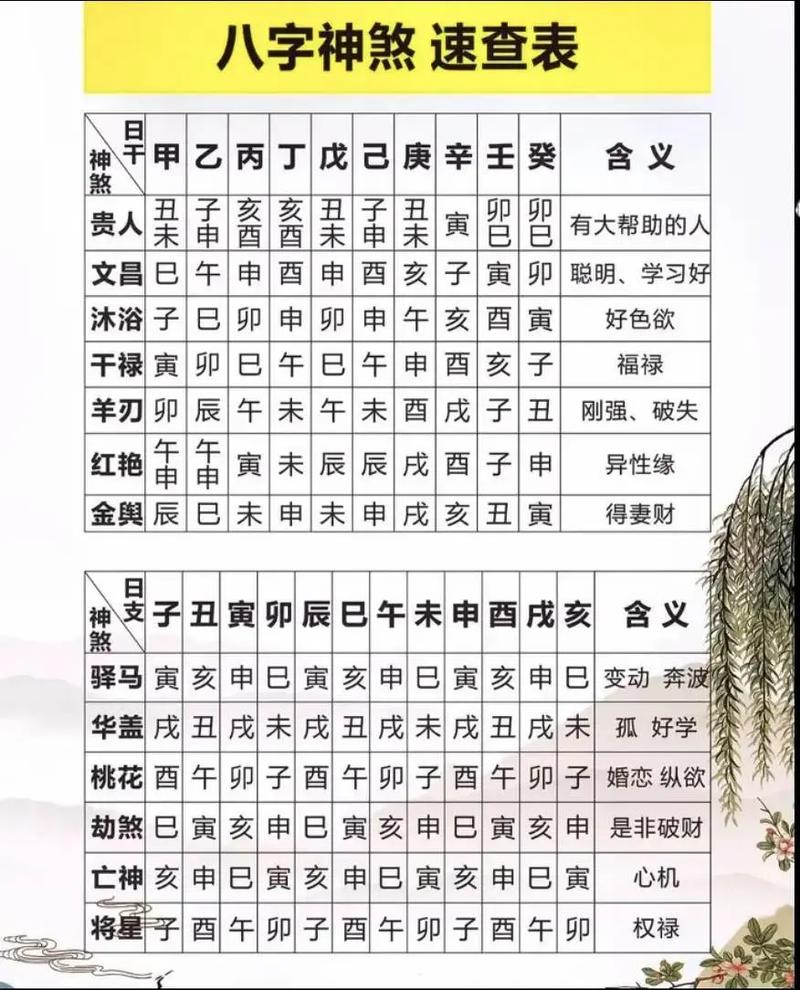 八字神煞 速查表
日干 神煞 甲 乙 丙 丁 戊 己 庚 辛 壬 癸 含 义
贵人 丑未 子申 亥酉 亥酉 丑未 子申 丑未 寅 卯巳 卯巳 有大帮助的人
文昌 巳 午 申 酉 申 酉 亥 子 寅 卯 聪明、学习好
沐浴 子 巳 卯 申 卯 申 午 亥 酉 寅 好色欲
干禄 寅 卯 巳 午 巳 午 申 酉 亥 子 福禄
羊刃 卯 辰 午 未 午 未 酉 戌 子 丑 刚强、破失
红艳 午申 午申 寅 未 辰 辰 戌 酉 子 申 异性缘
金舆 辰 巳 未 申 未 申 戌 亥 丑 寅 得妻财
日支 神煞 子 丑 寅 卯 辰 巳 午 未 申 酉 戌 亥 含 义
驿马 寅 亥 申 巳 寅 亥 申 巳 寅 亥 申 巳 变动 奔波
华盖 戌 丑 戌 未 戌 丑 戌 未 戌 丑 戌 未 孤 好学
桃花 酉 午 卯 子 酉 午 卯 子 酉 午 卯 子 婚恋 纵欲
劫煞 巳 寅 亥 申 巳 寅 亥 申 巳 寅 亥 申 是非破财
亡神 亥 申 巳 寅 亥 申 巳 寅 亥 申 巳 寅 心机
将星 子 酉 午 卯 子 酉 午 卯 子 酉 午 卯 权禄